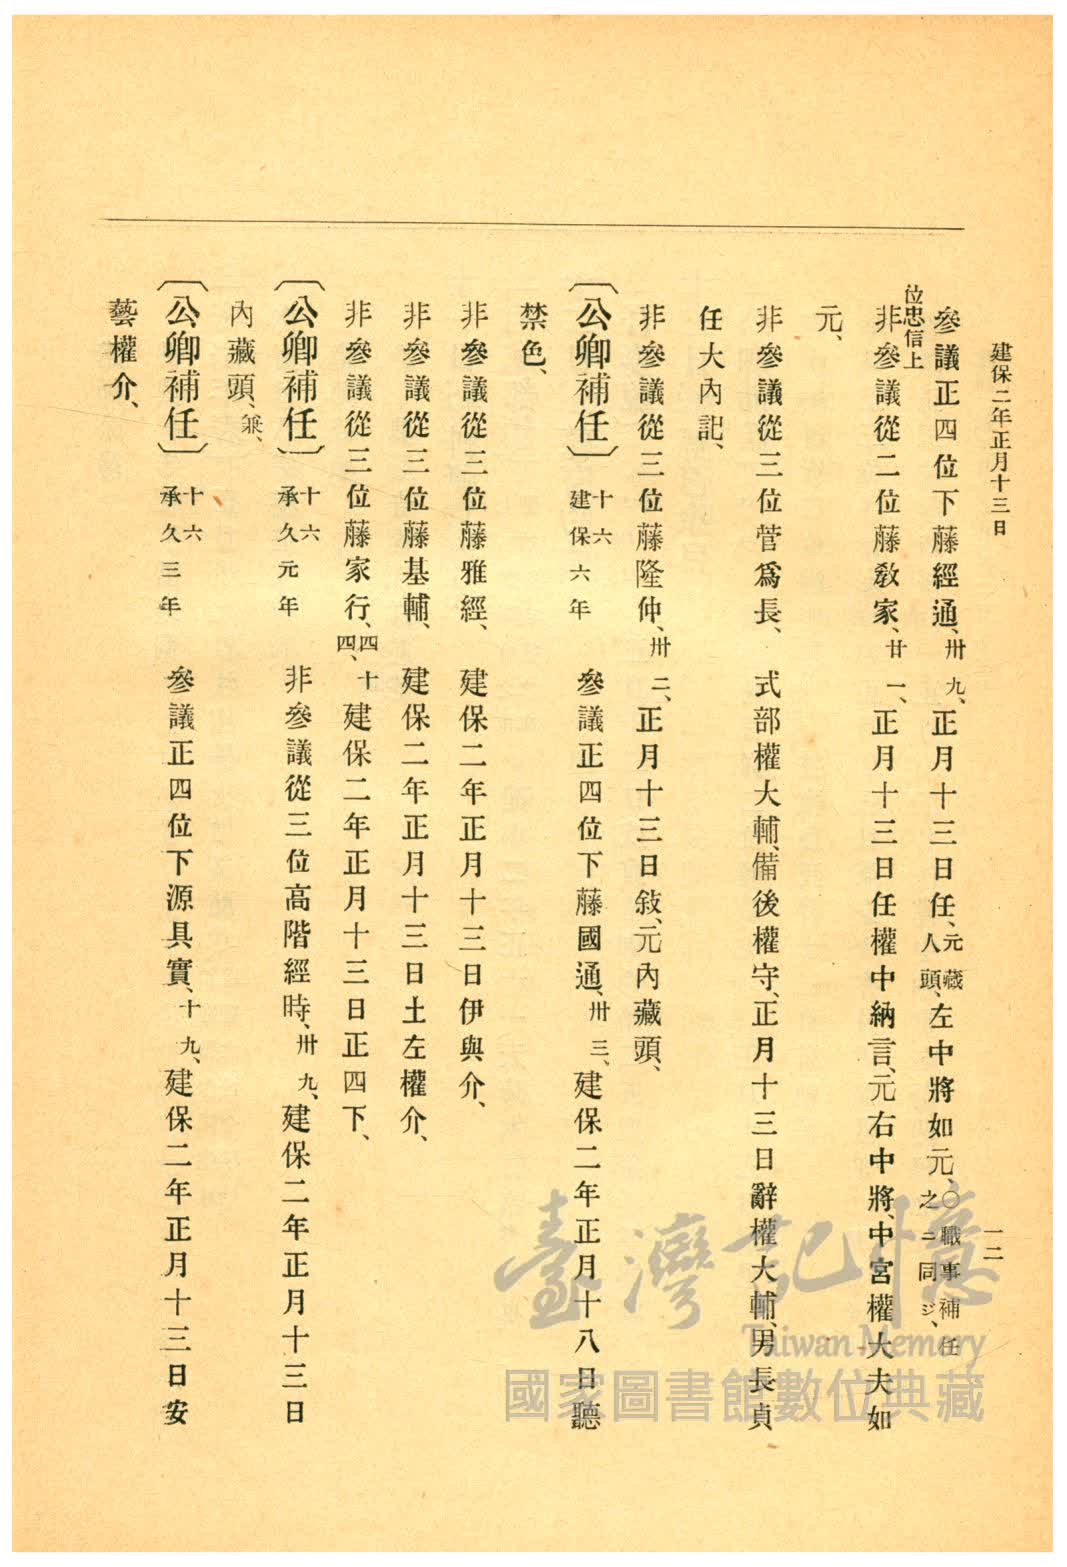 建保二年正月十三日
一二
參議正四位下藤經通、卅九、正月十三日任、元藏人頭、左中將如元、〇職事補任之ニ同ジ、
位忠信上
非參議從二位藤敎家、廿一、正月十三日任權中納言、元右中將、中宮權大夫如
元、
非參議從三位菅爲長、 式部權大輔、備後權守、正月十三日辭權大輔、男長貞
任大內記、
非參議從三位藤隆仲、卅二、正月十三日敍、元內藏頭、
〔公卿補任〕 十六 建保六年 參議正四位下藤國通、卅三、建保二年正月十八日聽
禁色、
非參議從三位藤雅經、 建保二年正月十三日伊與介、
非參議從三位藤基輔、 建保二年正月十三日土左權介、
非參議從三位藤家行、四十四、建保二年正月十三日正四下、
〔公卿補任〕 十六 承久元年 非參議從三位高階經時、卅九、建保二年正月十三日
內藏頭、兼、
〔公卿補任〕 十六 承久三年 參議正四位下源具實、十九、建保二年正月十三日安
藝權介、
臺灣記憶
Taiwan Memory
國家圖書館數位典藏